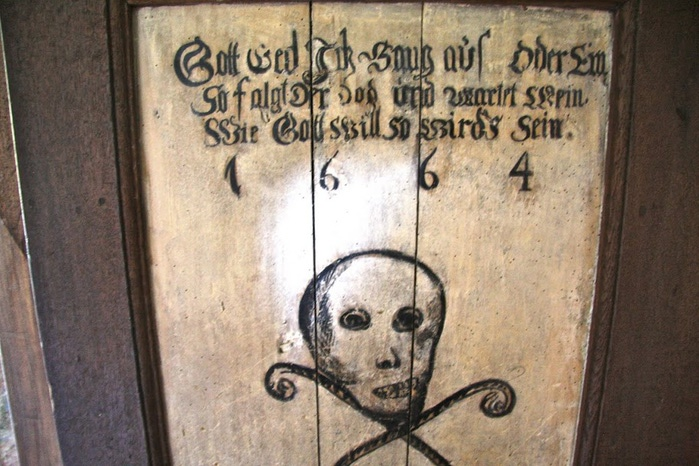 Gott Ich Gang aus Oder Ein,
So falgt Der Dod und wartet Mein.
Wie Gott Will so wirds Sein.
1 6 6 4